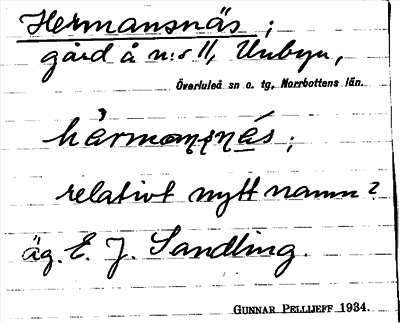 Hermansnäs;
gård å n:r 11, Unbyn,
Överluleå sn o. tg, Norrbottens län.
relativt nytt namn?
äg. E. J. Sandling.
GUNNAR PELLIJEFF 1934.